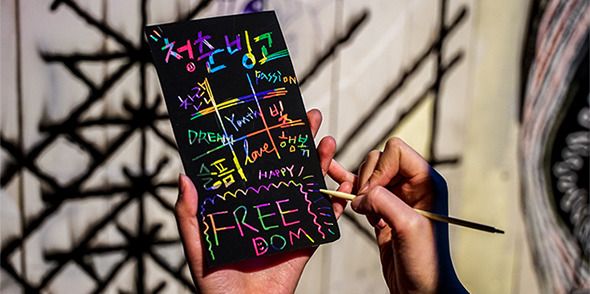 청춘빙고
Passion
DREAM Youth 빛
슬픔 love 행복
HAPPY
FREE
DOM